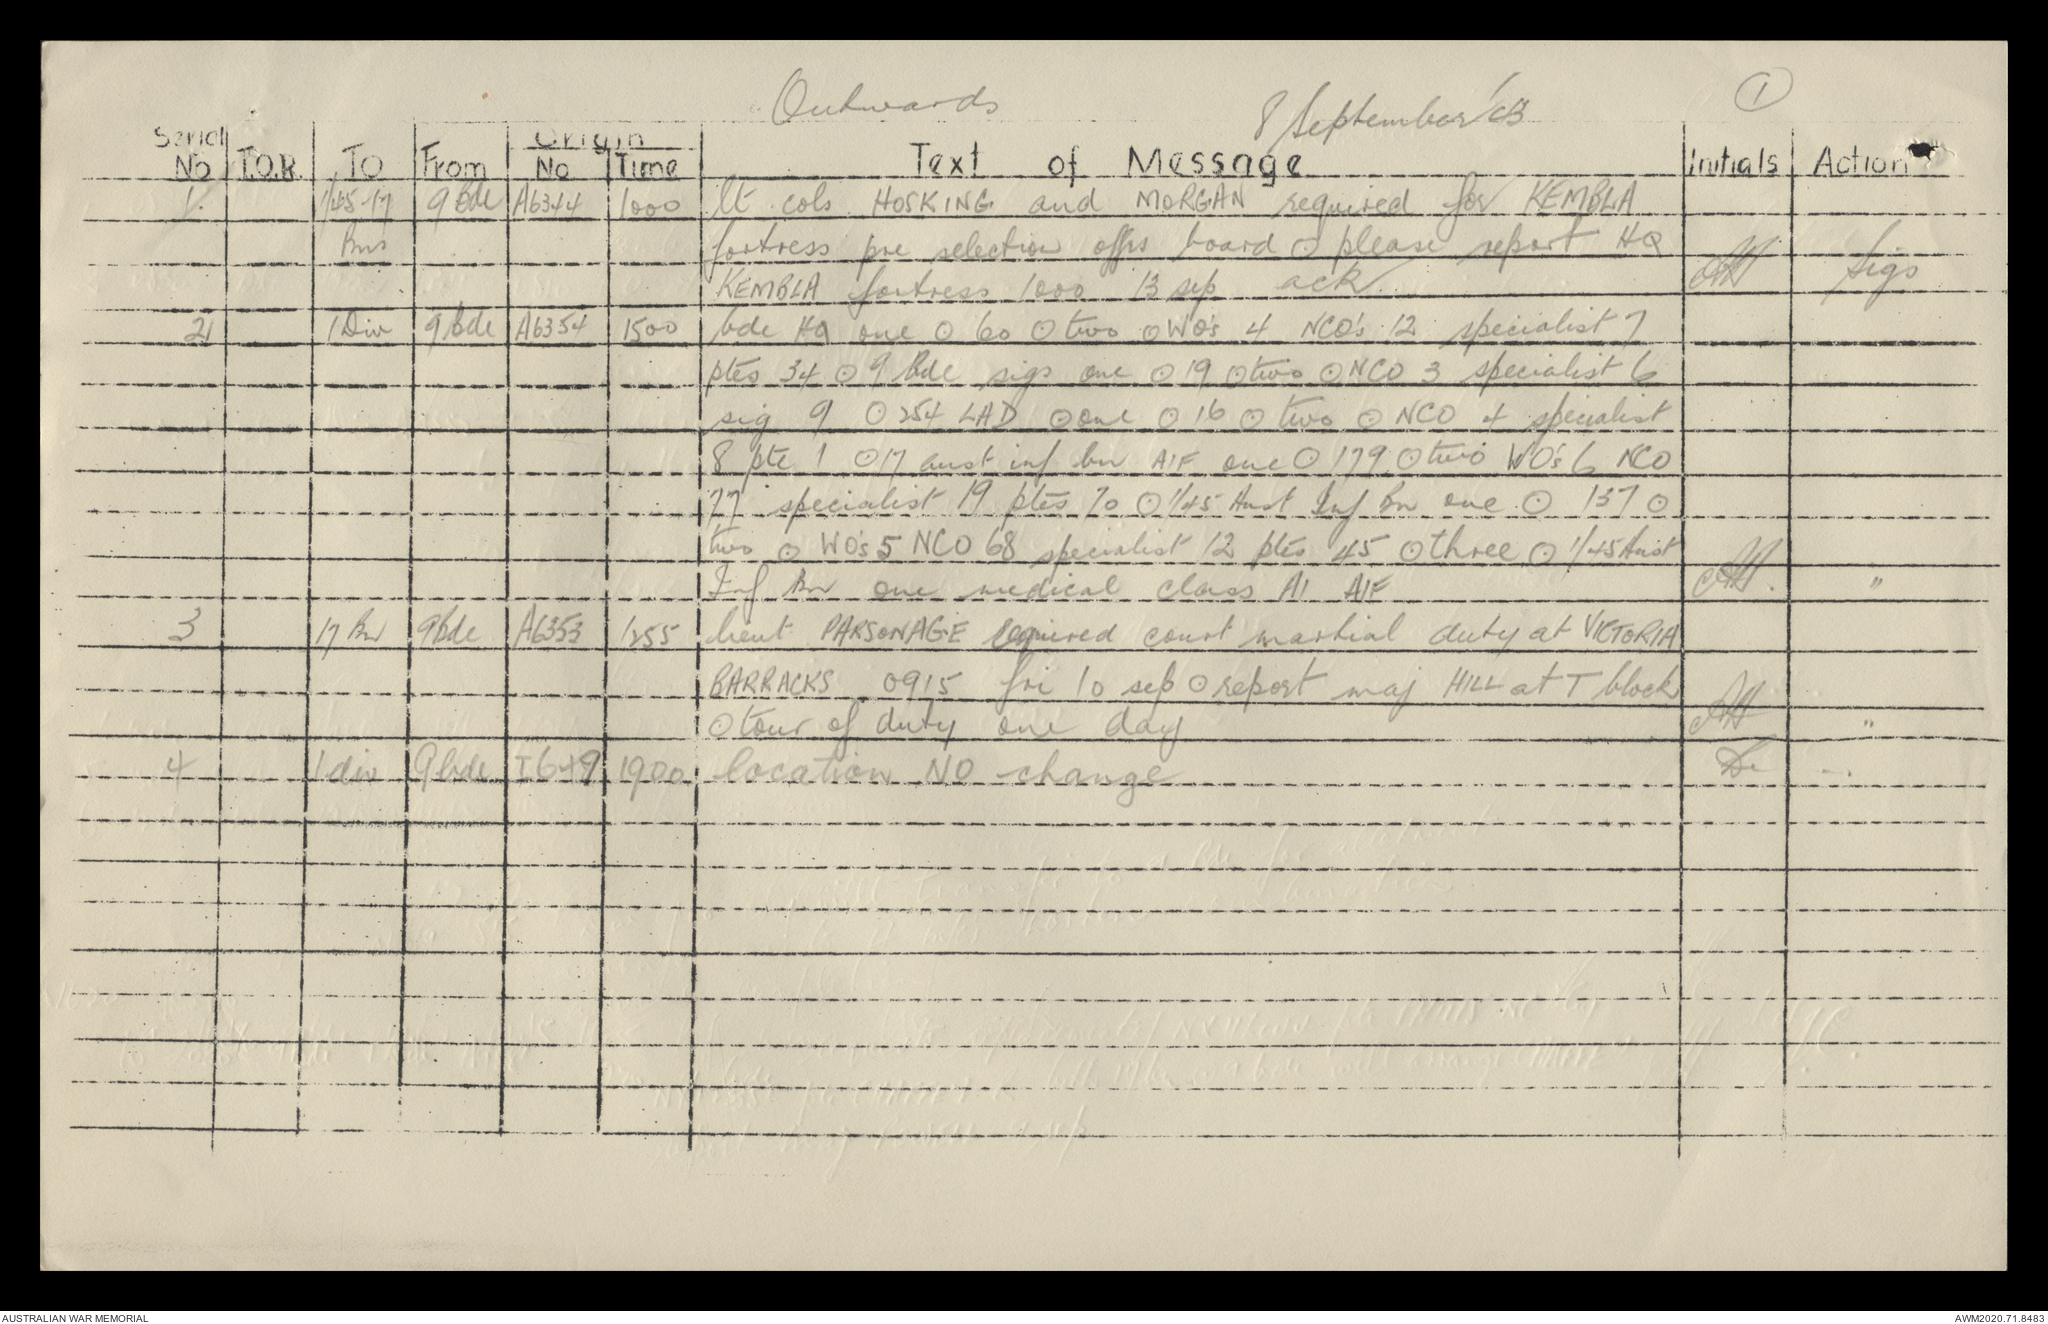 Outwards 8 September '43 1
Serial Origin
No T.O.R. TO From No Time Text of Message Initials Action
1. 1/45-17 9 Bde A6344 1000 lt cols HOSKING and MORGAN required for KEMBLA
Bns fortress pre selection offrs board ⊙ please report HQ
KEMBLA fortress 1000 13 sep ack. Sigs
2 1 Div 9 bde A6354 1500 bde HQ one ⊙ 60 ⊙ two ⊙ WO's 4 NCO's 12 specialist 7
ptes 34 ⊙ 9 Bde sigs one ⊙ 19 ⊙ two ⊙ NCO 3 specialist 6
sig 9 ⊙ 254 LAD ⊙ one ⊙ 16 ⊙ two ⊙ NCO 4 specialist
8 pte 1 ⊙ 17 aust inf bn AIF one ⊙ 179 ⊙ two WO's 6 NCO
77 specialist 19 ptes 70 ⊙ 1/45 Aust Inf Bn one ⊙ 137 ⊙
two ⊙ WO's 5 NCO 68 specialist 12 ptes 45 ⊙ three ⊙ 1/45 Aust
Inf Bn one medical class A1 AIF "
3 17 Bn 9 bde A6353 1255 lieut PARSONAGE required court martial duty at VICTORIA
BARRACKS 0915 fri 10 sep ⊙ report maj HILL at T block
⊙ tour of duty one day "
4 1 div 9 bde I649 1900 location NO change
AUSTRALIAN WAR MEMORIAL AWM2020.71.8483